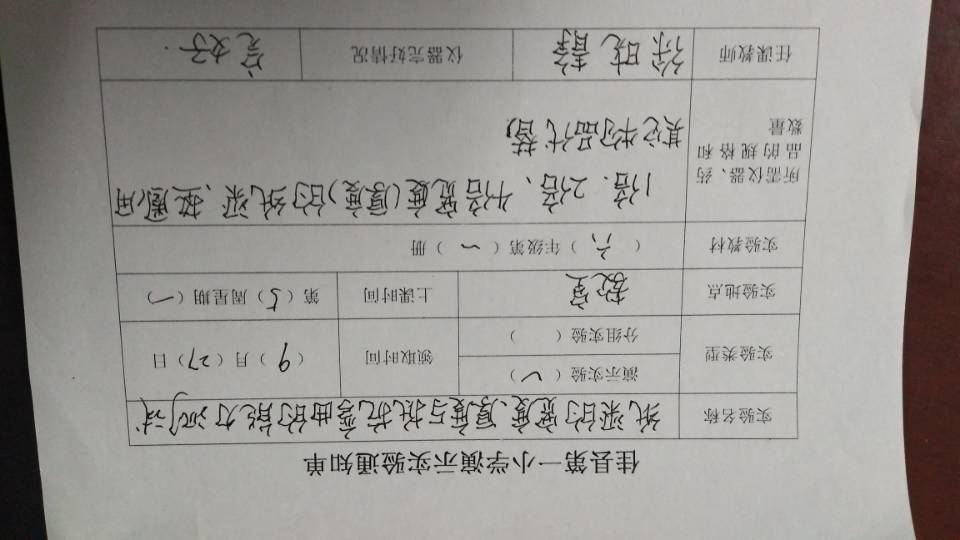 佳县第一小学演示实验通知单
实验名称 纸梁的宽度、厚度与抵抗弯曲的能力测试
实验类型 演示实验（✓） 领取时间 （9）月（27）日
分组实验（ ）
实验地点 教室 上课时间 第（5）周星期（一）
实验教材 （六）年级第（一）册
所需仪器、药品的规格和数量 1倍、2倍、4倍宽度（厚度）的纸梁、垫圈（用
其它物品代替）
任课教师 徐晓 仪器完好情况 完好